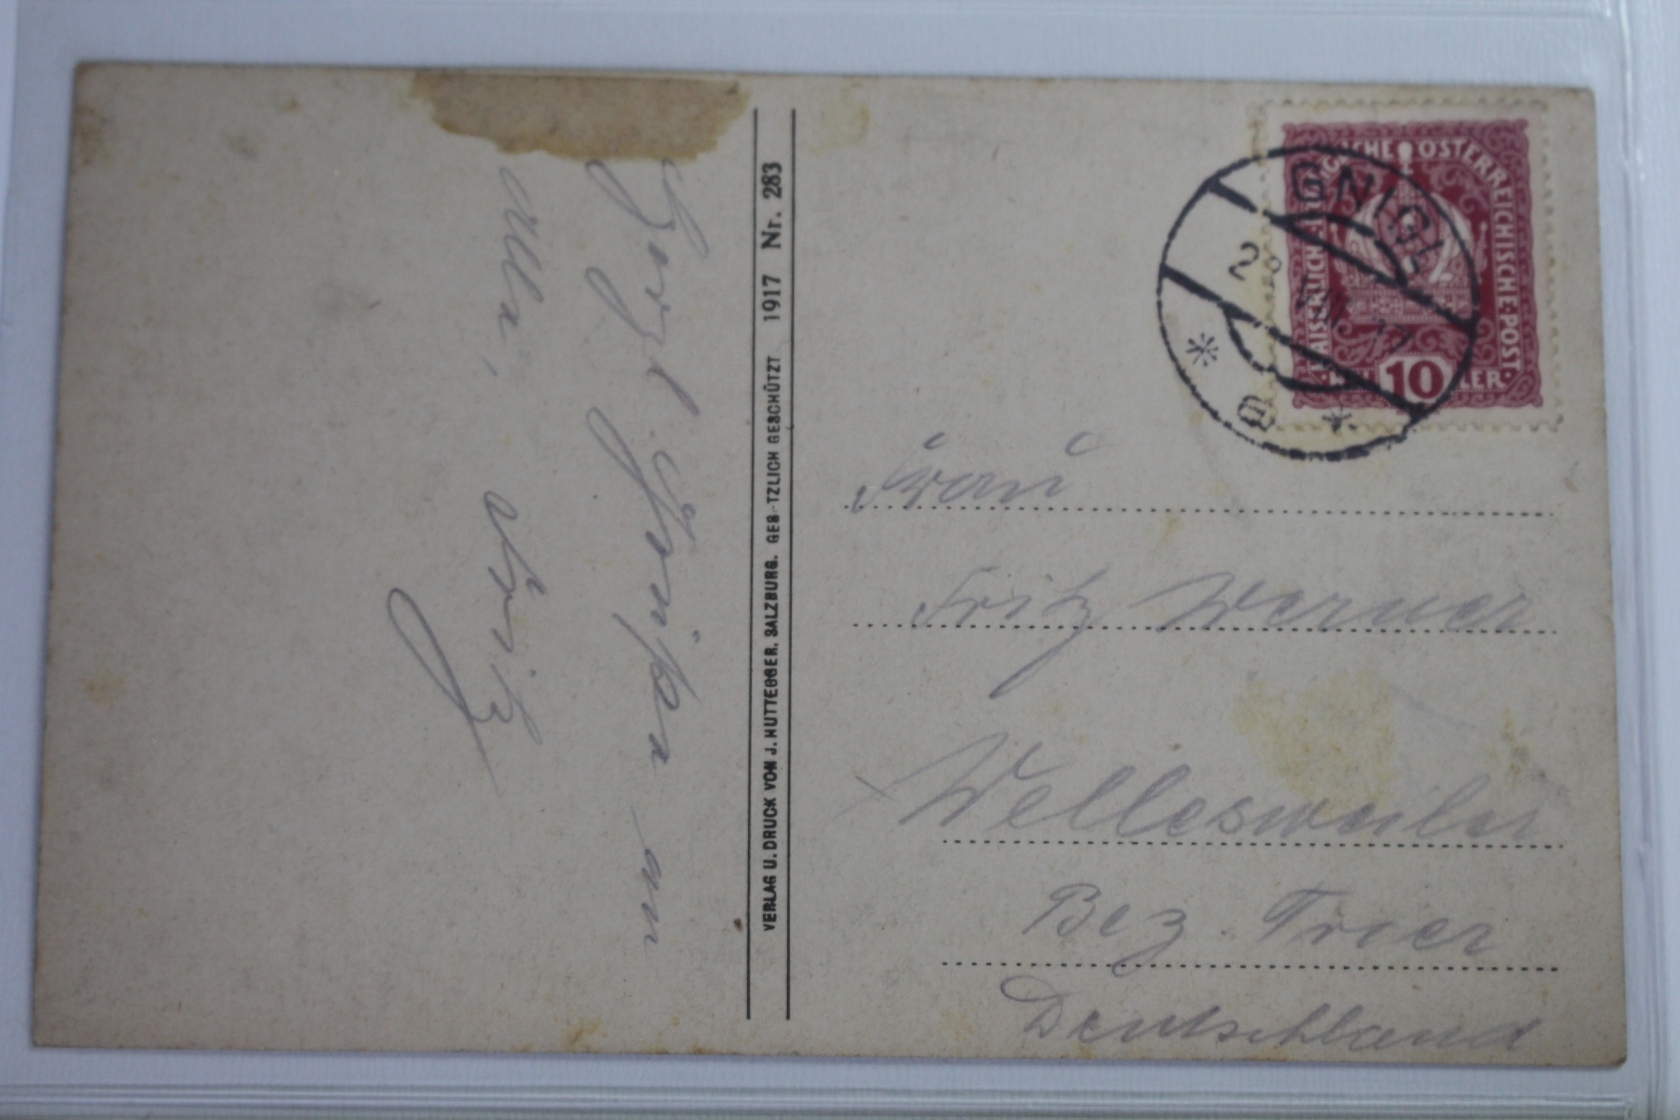 Herzl. Grüße an
Alle, Fritz
VERLAG U. DRUCK VON J. HUTTEGGER, SALZBURG. GESETZLICH GESCHÜTZT 1917 Nr. 283
KAISERLICHE KÖNIGLICHE ÖSTERREICHISCHE POST
10
HELLER
GNIGL
17
*
a
*
Frau
Fritz Werner
Wellesweiler
Bez. Trier
Deutschland